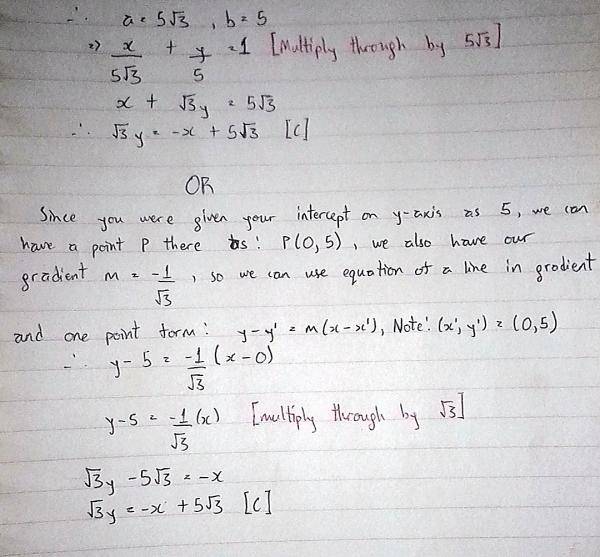 ∴ a = 5√3 , b = 5
=> x/5√3 + y/5 = 1 [Multiply through by 5√3]
x + √3y = 5√3
∴ √3y = -x + 5√3 [C]
OR
Since you were given your intercept on y-axis as 5, we can
have a point P there as: P(0,5), we also have our
gradient m = -1/√3 , so we can use equation of a line in grodient
and one point form: y-y' = m(x-x'), Note: (x',y') = (0,5)
∴ y-5 = -1/√3 (x-0)
y-5 = -1/√3 (x) [multiply through by √3]
√3y -5√3 = -x
√3y = -x + 5√3 [C]